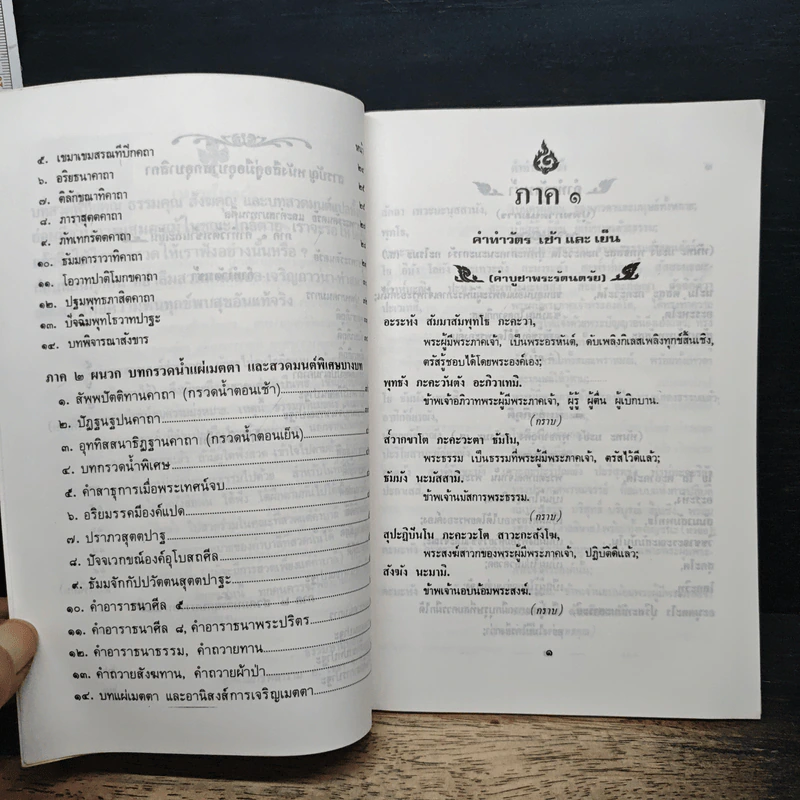 ๕. เขมาเขมสรณทีปิกคาถา
๖. อริยธนาคาถา
๗. ติลักขณาทิคาถา
๘. ภาราสุตตคาถา
๙. ภัทเทกรัตตคาถา
๑๐. ธัมมคารวาทิคาถา
๑๑. โอวาทปาติโมกขคาถา
๑๒. ปฐมพุทธภาสิตคาถา
๑๓. ปัจฉิมพุทโธวาทปาฐะ
๑๔. บทพิจารณาสังขาร
ภาค ๒ ผนวก บทกรวดน้ำแผ่เมตตา และสวดมนต์พิเศษบางบท
๑. สัพพปัตติทานคาถา (กรวดน้ำตอนเช้า)
๒. ปัฏฐนฐปนคาถา
๓. อุททิสสนาธิฏฐานคาถา (กรวดน้ำตอนเย็น)
๔. บทกรวดน้ำพิเศษ
๕. คำสาธุการเมื่อพระเทศน์จบ
๖. อริยมรรคมีองค์แปด
๗. ปราภวสุตตปาฐ
๘. ปัจจเวกขณ์องค์อุโบสถศีล
๙. ธัมมจักกัปปวัตตนสุตตปาฐะ
๑๐. คำอาราธนาศีล ๕
๑๑. คำอาราธนาศีล ๘, คำอาราธนาพระปริตร
๑๒. คำอาราธนาธรรม, คำถวายทาน
๑๓. คำถวายสังฆทาน, คำถวายผ้าป่า
๑๔. บทแผ่เมตตา และอานิสงส์การเจริญเมตตา
ภาค ๑
คำทำวัตร เช้า และ เย็น
(คำบูชาพระรัตนตรัย)
อะระหัง สัมมาสัมพุทโธ ภะคะวา,
พระผู้มีพระภาคเจ้า, เป็นพระอรหันต์, ดับเพลิงกิเลสเพลิงทุกข์สิ้นเชิง,
ตรัสรู้ชอบได้โดยพระองค์เอง;
พุทธัง ภะคะวันตัง อะภิวาเทมิ.
ข้าพเจ้าอภิวาทพระผู้มีพระภาคเจ้า, ผู้รู้ ผู้ตื่น ผู้เบิกบาน.
(กราบ)
ส๎วากขาโต ภะคะวะตา ธัมโม,
พระธรรม เป็นธรรมที่พระผู้มีพระภาคเจ้า, ตรัสไว้ดีแล้ว;
ธัมมัง นะมัสสามิ.
ข้าพเจ้านมัสการพระธรรม.
(กราบ)
สุปะฏิปันโน ภะคะวะโต สาวะกะสังโฆ,
พระสงฆ์สาวกของพระผู้มีพระภาคเจ้า, ปฏิบัติดีแล้ว;
สังฆัง นะมามิ.
ข้าพเจ้านอบน้อมพระสงฆ์.
(กราบ)
๑